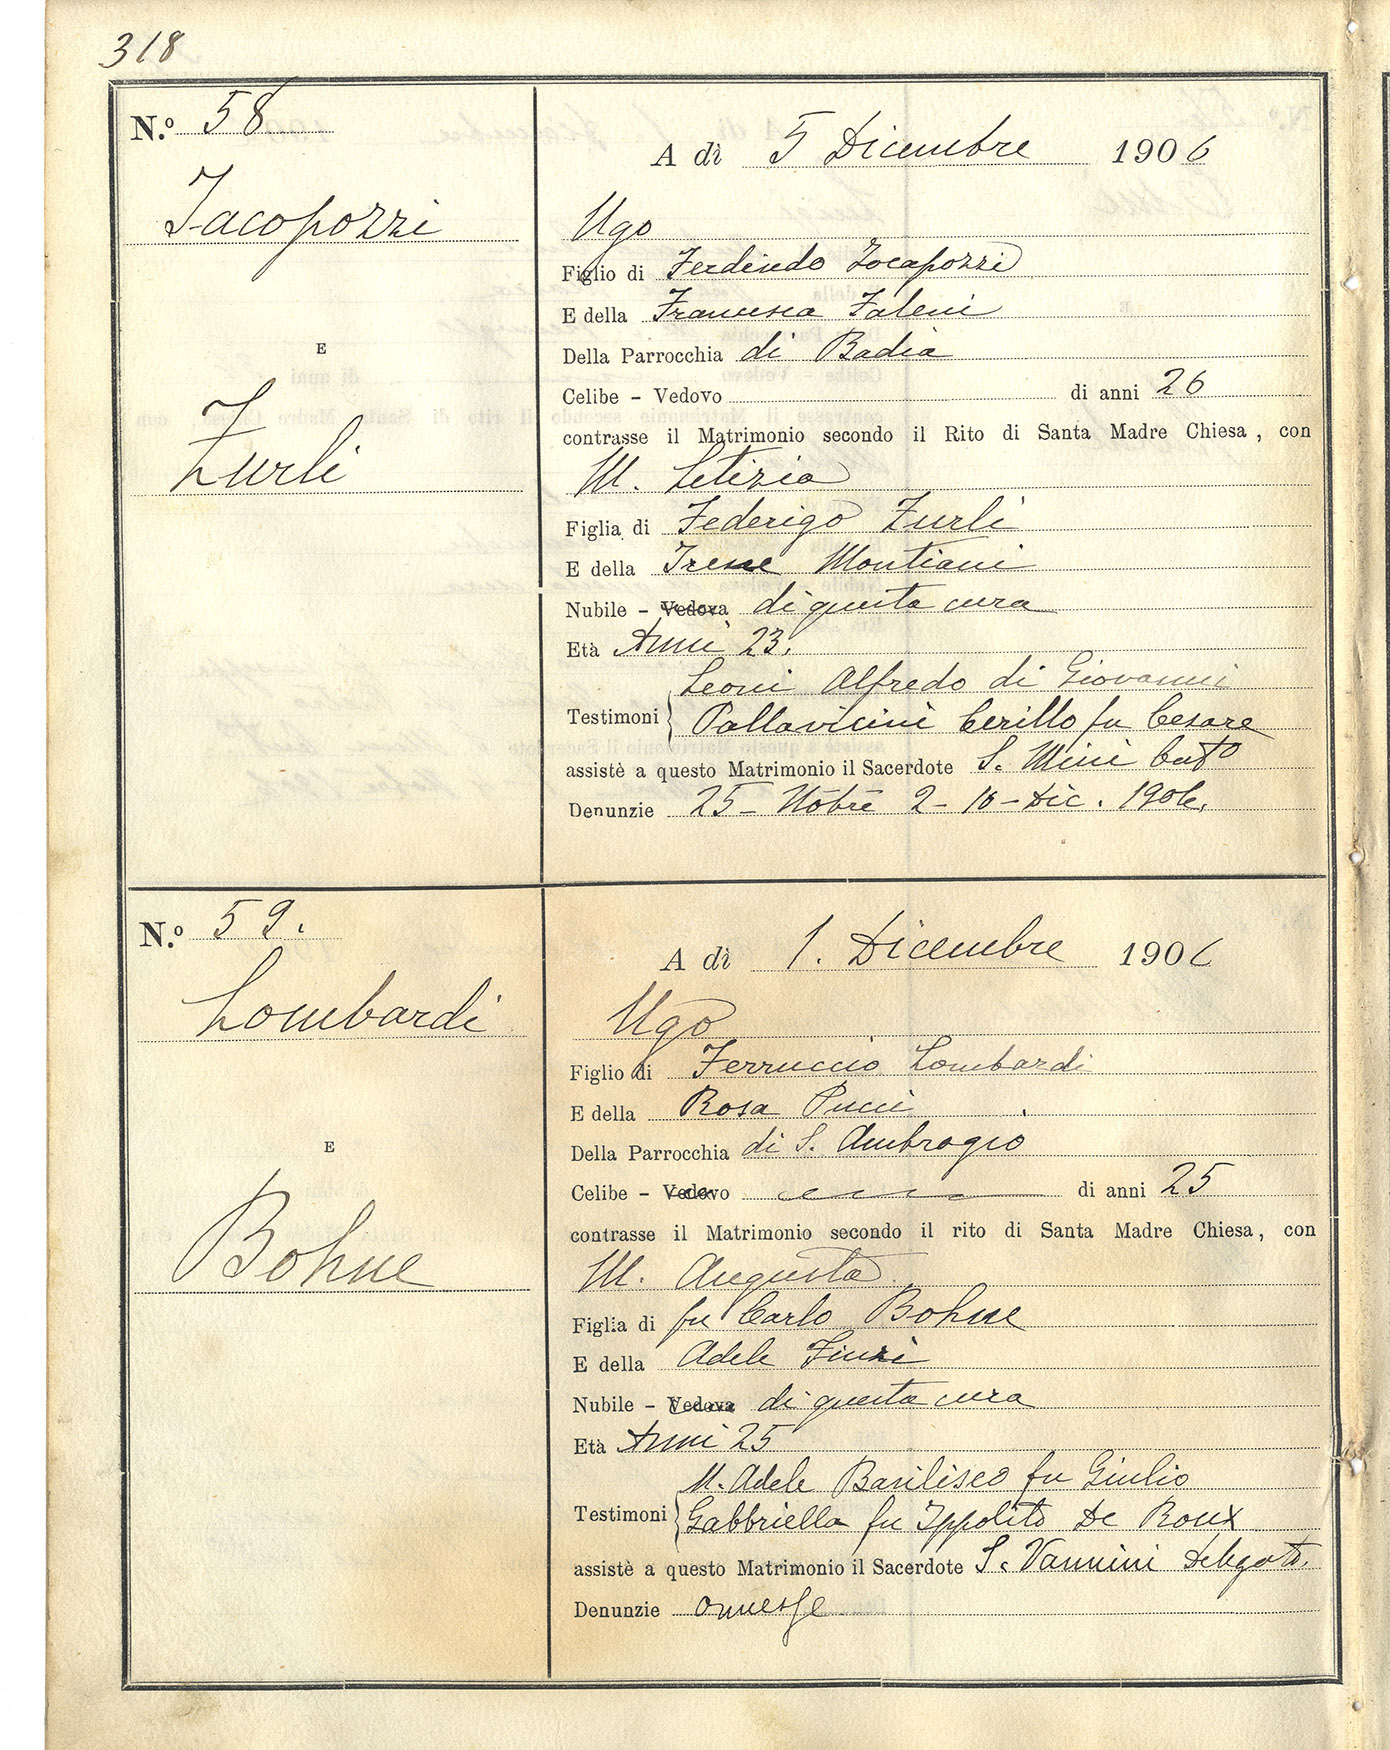 318
N.º 58
A dì 5 Dicembre 1906
Jacopozzi
Ugo
Figlio di Ferdindo Jocapozzi
E della Francesca Faleni
E
Della Parrocchia di Badia
Celibe - Vedovo di anni 26
contrasse il Matrimonio secondo il Rito di Santa Madre Chiesa, con
Zurli
M. Letizia
Figlia di Federigo Zurli
E della Irene Montiani
Nubile - Vedova di questa cura
Età Anni 23.
Leoni Alfredo di Giovanni
Testimoni Pallavicini Cerillo fu Cesare
assistè a questo Matrimonio il Sacerdote S. Mini
Denunzie 25 - 2 - 10 - Dic. 1906.
N.º 59.
A dì 1. Dicembre 1906
Lombardi
Ugo
Figlio di Ferruccio Lombardi
E della Rosa Pucci
E
Della Parrocchia di S. Ambrogio
Celibe - Vedovo di anni 25
contrasse il Matrimonio secondo il rito di Santa Madre Chiesa, con
Bohne
M. Augusta
Figlia di fu Carlo Bohne
E della Adele Finzi
Nubile - Vedova di questa cura
Età Anni 25
M. Adele Basilisco fu Giulio
Testimoni Gabbriella fu Ippolito De Roux
assistè a questo Matrimonio il Sacerdote S. Vannini Delegato.
Denunzie omesse